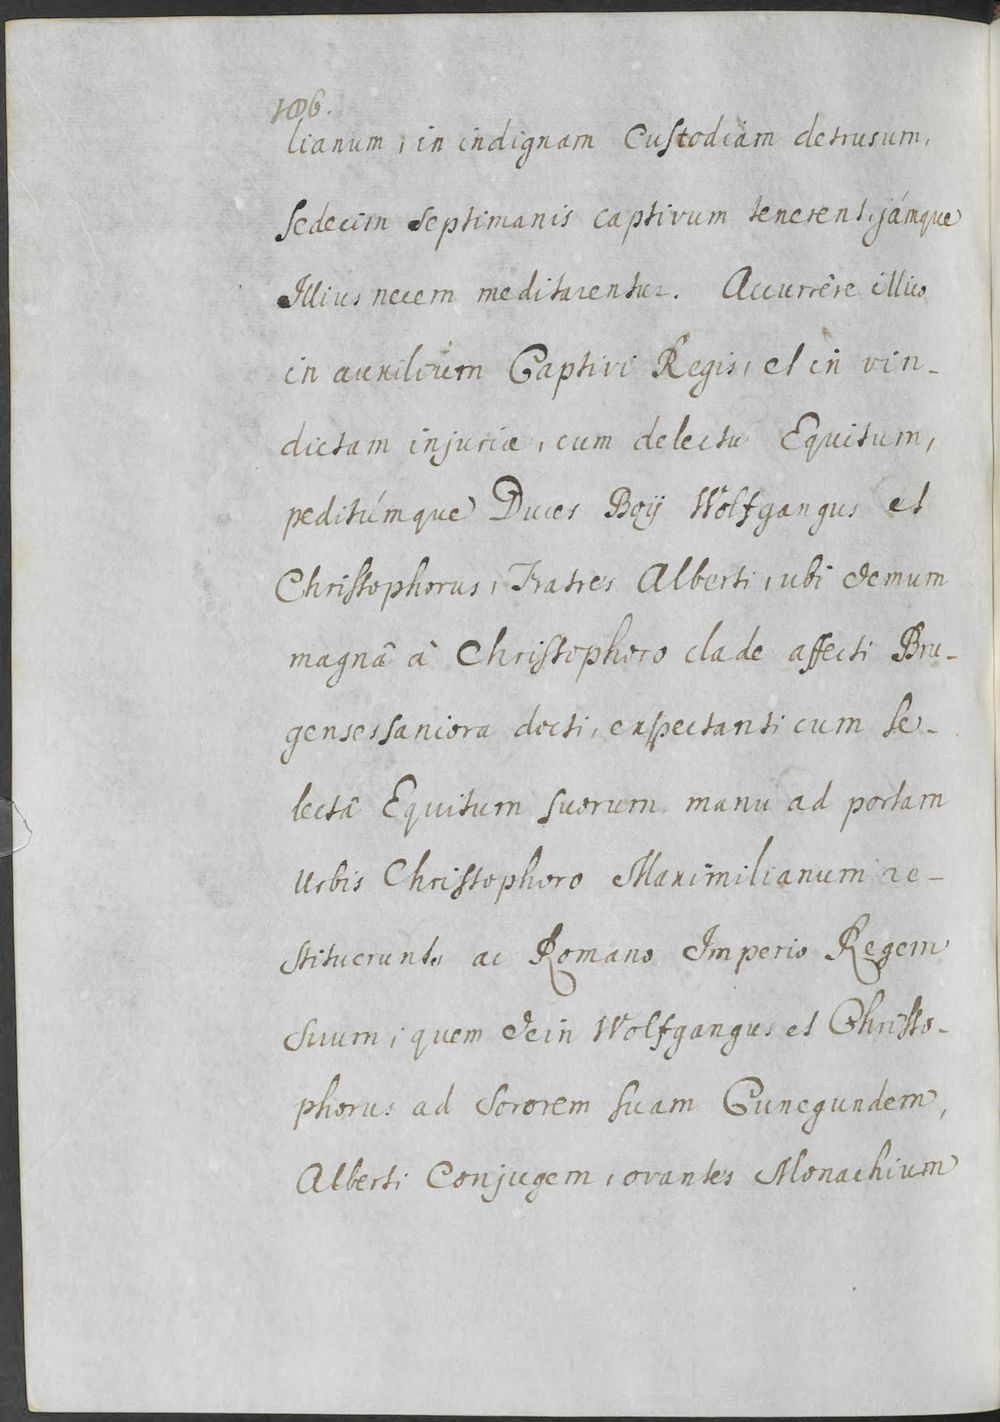 106.
lianum, in indignam Custodiam detrusum,
sedecim Septimanis captivum tenerent, jámque
Illius necem meditarentur. Accurrêre illico
in auxilium Captivi Regis, et in vin-
dictam injuriæ, cum delectu Equitum,
peditúmque Duces Boij Wolfgangus et
Christophorus, Fratres Alberti, ubi demum
magnâ à Christophoro clade affecti Bru-
genses saniora docti, expectanti cum se-
lectâ Equitum suorum manu ad portam
Urbis Christophoro Maximilianum re-
stituerunt, ac Romano Imperio Regem
suum; quem dein Wolfgangus et Christo-
phorus ad Sororem suam Cunegundem,
Alberti Conjugem, ovantes Monachium